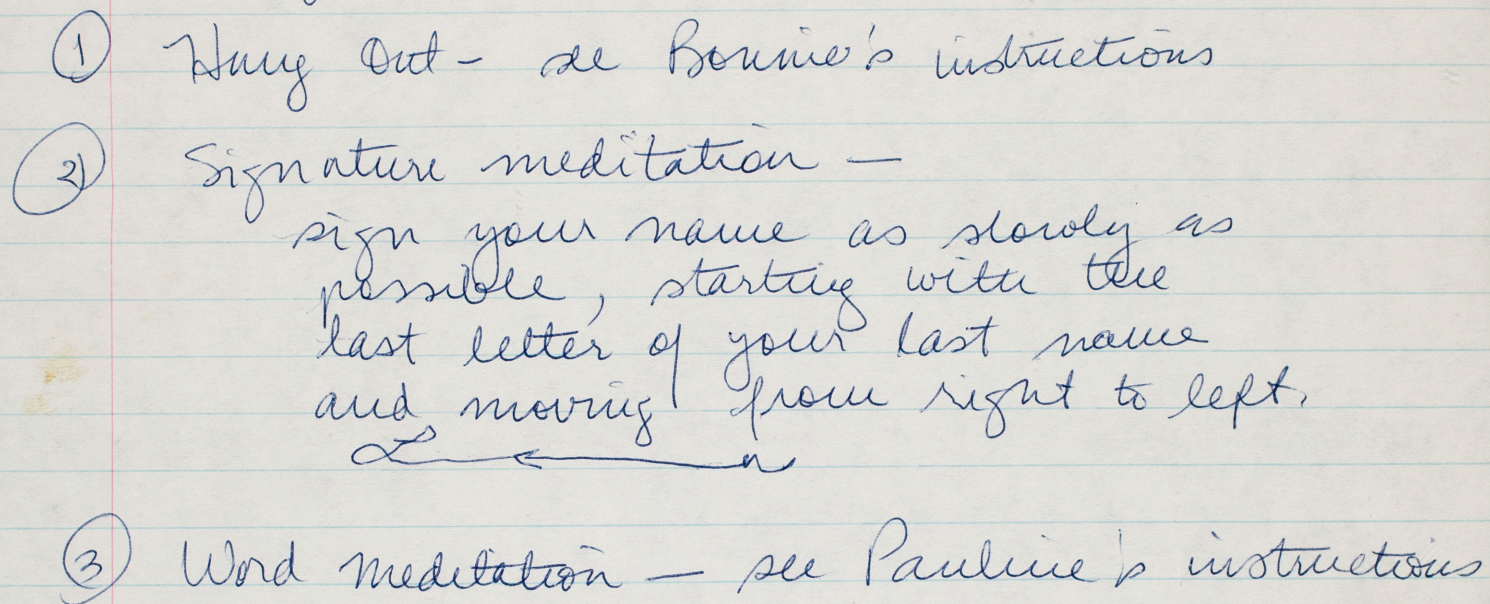 1 Hang Out - see Bonnie's instructions
2) Signature meditation —
sign your name as slowly as
possible, starting with the
last letter of your last name
and moving from right to left.
3 Word Meditation — see Pauline's instructions